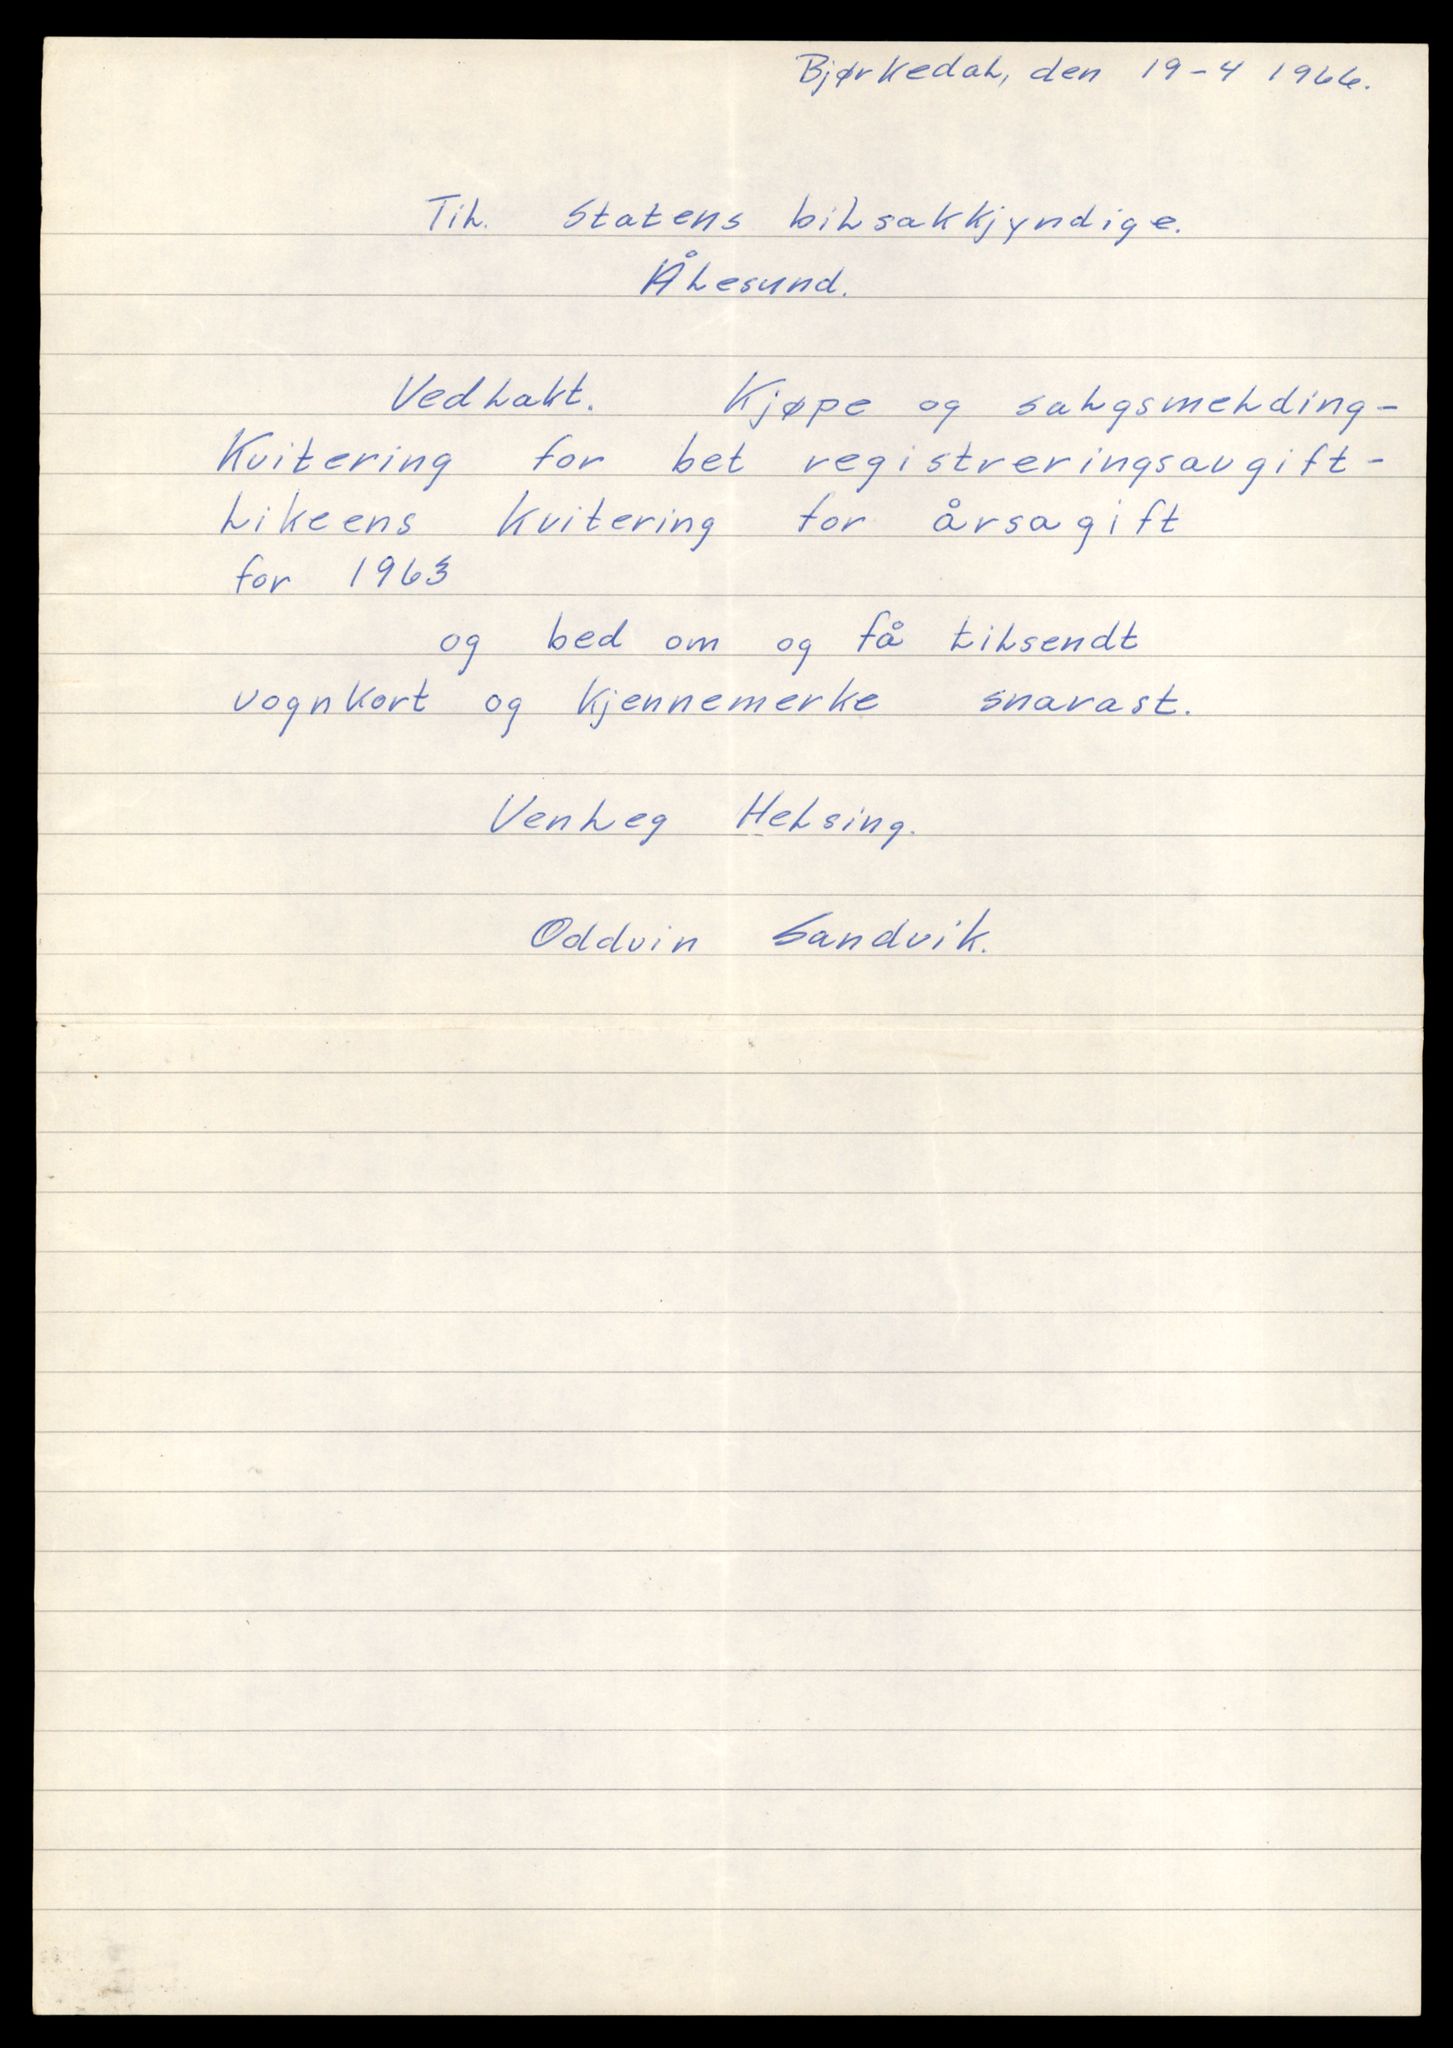 Bjørkedal, den 19-4 1966.
Til. Statens bilsakkjyndige.
Ålesund.
Vedlakt. Kjøpe og salgsmelding-
Kvitering for bet registreringsavgift-
Likeens Kvitering for årsagift
for 1963
og bed om og få tilsendt
vognkort og kjennemerke snarast.
Venleg Helsing.
Oddvin Sandvik.